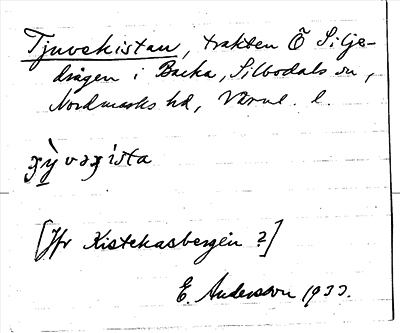 Tjuvakistan, trakten Ö Silje-
dingen i Backa, Silbodals sn,
Nordmarks hd, Värml. l.
[Jfr Kistekasbergen ?]
E. Andersson 1933.